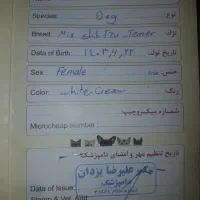 Species: Dog نوع:
Breed: Mix shih Tzu _ Terrier نژاد:
Date of Birth: ۱۴۰۳,۶,۲۲ تاریخ تولد:
Sex: Female جنس:
Color: white-Cream رنگ:
شماره میکروچیپ:
Microcheap number:
تاریخ تنظیم مهر و امضای دامپزشک
دکتر علیرضا یزدان
دامپزشک
Data of Issue:
Stamp & Vet.